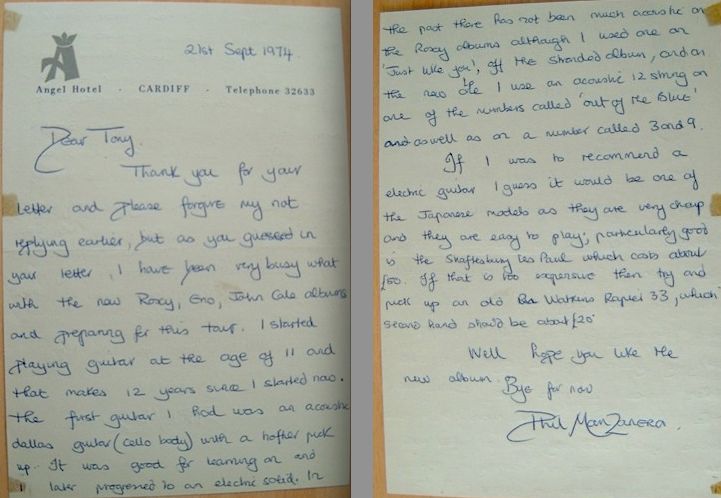 21st Sept 1974.
Angel Hotel · CARDIFF · Telephone 32633
Dear Tony,
Thank you for your
letter and please forgive my not
replying earlier, but as you guessed in
your letter, I have been very busy what
with the new Roxy, Eno, John Cale albums
and preparing for this tour. I started
playing guitar at the age of 11 and
that makes 12 years since I started now.
the first guitar I had was an acoustic
dallas guitar (cello body) with a hofner pick
up. It was good for learning on and
I later progressed to an electric solid. In
the past there has not been much acoustic on
the Roxy albums although I used one on
'Just like you', off the Stranded album, and on
the new one I use an acoustic 12 string on
one of the numbers called 'out of the Blue'
and as well as on a number called 3 and 9.
If I was to recommend a
electric guitar I guess it would be one of
the Japanese models as they are very cheap
and they are easy to play; particularly good
is the Shaftesbury Les Paul which costs about
£50. If that is too expensive then try and
pick up an old Watkins Rapier 33, which
second hand should be about £20
Well hope you like the
new album. Bye for now
Phil Manzanera.